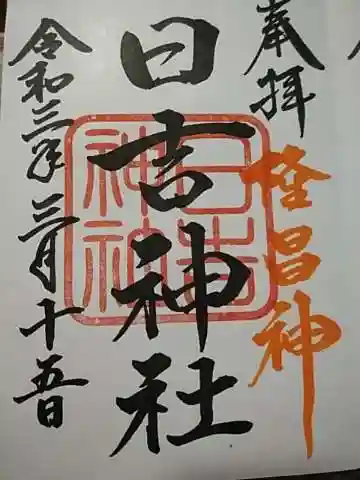 奉拝
昌神
日吉神社
日吉
神社
令和二年三月十五日